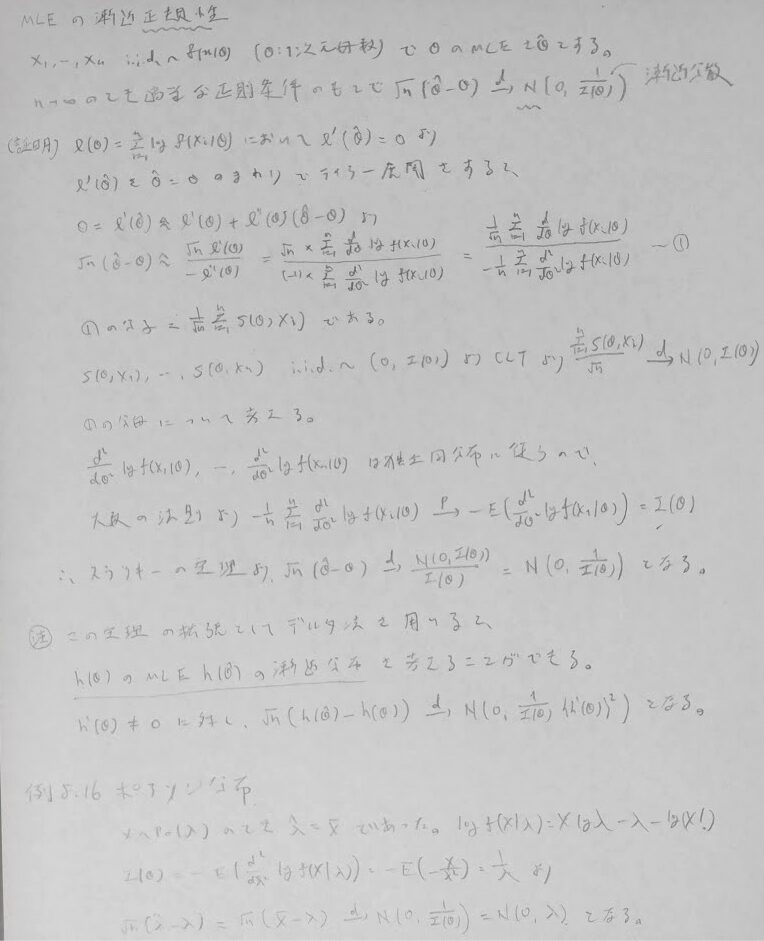 MLE の漸近正規性
X₁, ‥, Xₙ i.i.d. ~ f(x|θ) (θ:1次元母数) で θ の MLE を θ̂ とする。
n→∞ のとき適当な正則条件のもとで √n (θ̂-θ) →d N(0, 1/I(θ)) 漸近分散
(証明) ℓ(θ) = Σ_{i=1}^n log f(Xᵢ|θ) において ℓ'(θ̂) = 0 より
ℓ'(θ̂) を θ̂ = θ のまわりでテイラー展開をすると
0 = ℓ'(θ̂) ≈ ℓ'(θ) + ℓ''(θ)(θ̂-θ) より
√n (θ̂-θ) ≈ √n ℓ'(θ) / -ℓ''(θ) = √n × Σ_{i=1}^n d/dθ log f(Xᵢ|θ) / (-1) × Σ_{i=1}^n d²/dθ² log f(Xᵢ|θ) = 1/√n Σ_{i=1}^n d/dθ log f(Xᵢ|θ) / -1/n Σ_{i=1}^n d²/dθ² log f(Xᵢ|θ) ─ ①
①の分子 = 1/√n Σ_{i=1}^n S(θ, Xᵢ) である。
S(θ, X₁), ‥, S(θ, Xₙ) i.i.d. ~ (0, I(θ)) より CLT より Σ_{i=1}^n S(θ, Xᵢ) / √n →d N(0, I(θ))
①の分母について考える。
d²/dθ² log f(X₁|θ), ‥, d²/dθ² log f(Xₙ|θ) は独立同分布に従うので、
大数の法則より -1/n Σ_{i=1}^n d²/dθ² log f(Xᵢ|θ) →p -E(d²/dθ² log f(X₁|θ)) = I(θ)
∴ スラツキーの定理より √n (θ̂-θ) →d N(0, I(θ)) / I(θ) = N(0, 1/I(θ)) となる。
注 この定理の拡張としてデルタ法を用いると
h(θ) の MLE h(θ̂) の漸近分布を考えることができる。
h'(θ) ≠ 0 に対し、√n (h(θ̂) - h(θ)) →d N(0, 1/I(θ) (h'(θ))²) となる。
例 8.16 ポアソン分布
X ~ Po(λ) のとき λ̂ = X̄ であった。 log f(X|λ) = X log λ - λ - log(X!)
I(θ) = -E(d²/dλ² log f(X|λ)) = -E(-X/λ²) = 1/λ より
√n (λ̂-λ) = √n (X̄-λ) →d N(0, 1/I(θ)) = N(0, λ) となる。